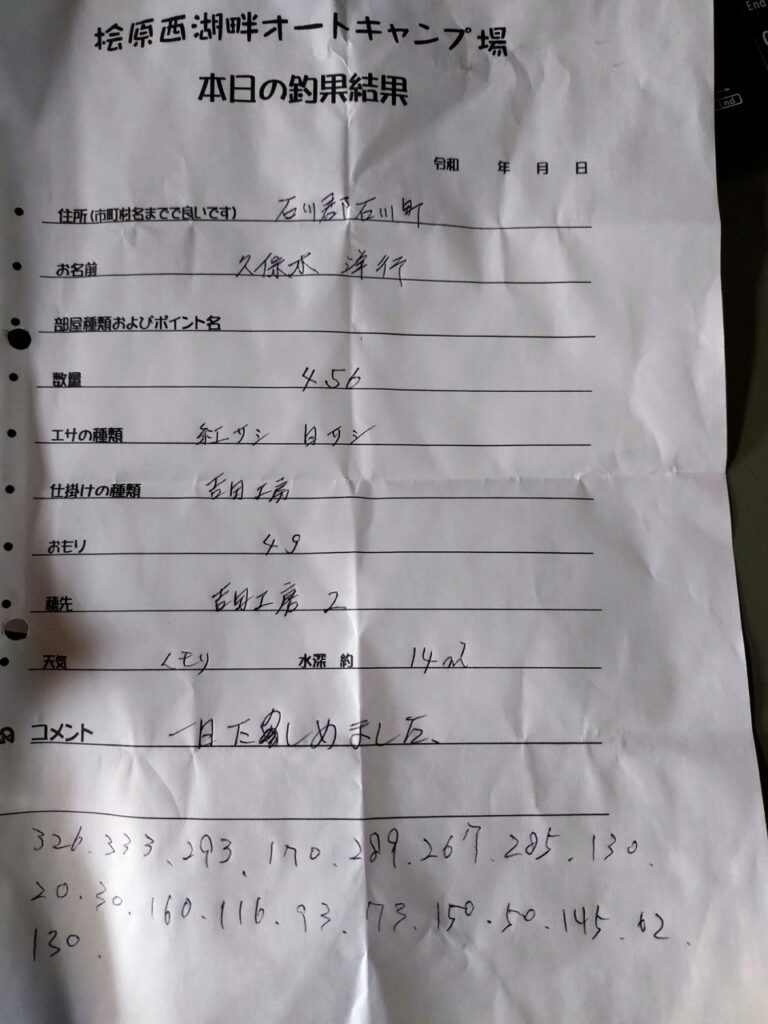 桧原西湖畔オートキャンプ場
本日の釣果結果
令和 年 月 日
住所(市町村名までで良いです) 石川郡石川町
お名前 久保木 洋行
部屋種類およびポイント名
数量 456
エサの種類 紅サシ 白サシ
仕掛けの種類 吉田工房
おもり 4g
穂先 吉田工房 2
天気 くもり 水深 約 14m
コメント 一日たのしめました、
326.333.293.170.289.267.285.130.
20.30.160.116.93.73.150.50.145.62.
130.